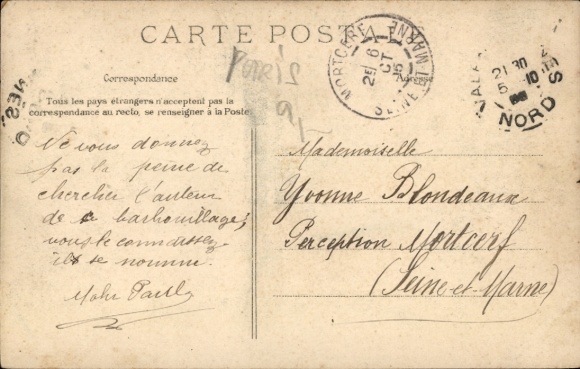 CARTE POSTALE
Correspondance
Tous les pays étrangers n'acceptent pas la
correspondance au recto, se renseigner à la Poste
Paris
MORTCERF SEINE ET MARNE
25 6
OCT
05
21 30
5 10
NORD
Ne vous donnez
pas la peine de
chercher l'auteur
de barbouillage;
vous le connaissez
il se nomme.
Paul
Mademoiselle
Yvonne Blondeaux
Perception Mortcerf
(Seine-et-Marne)